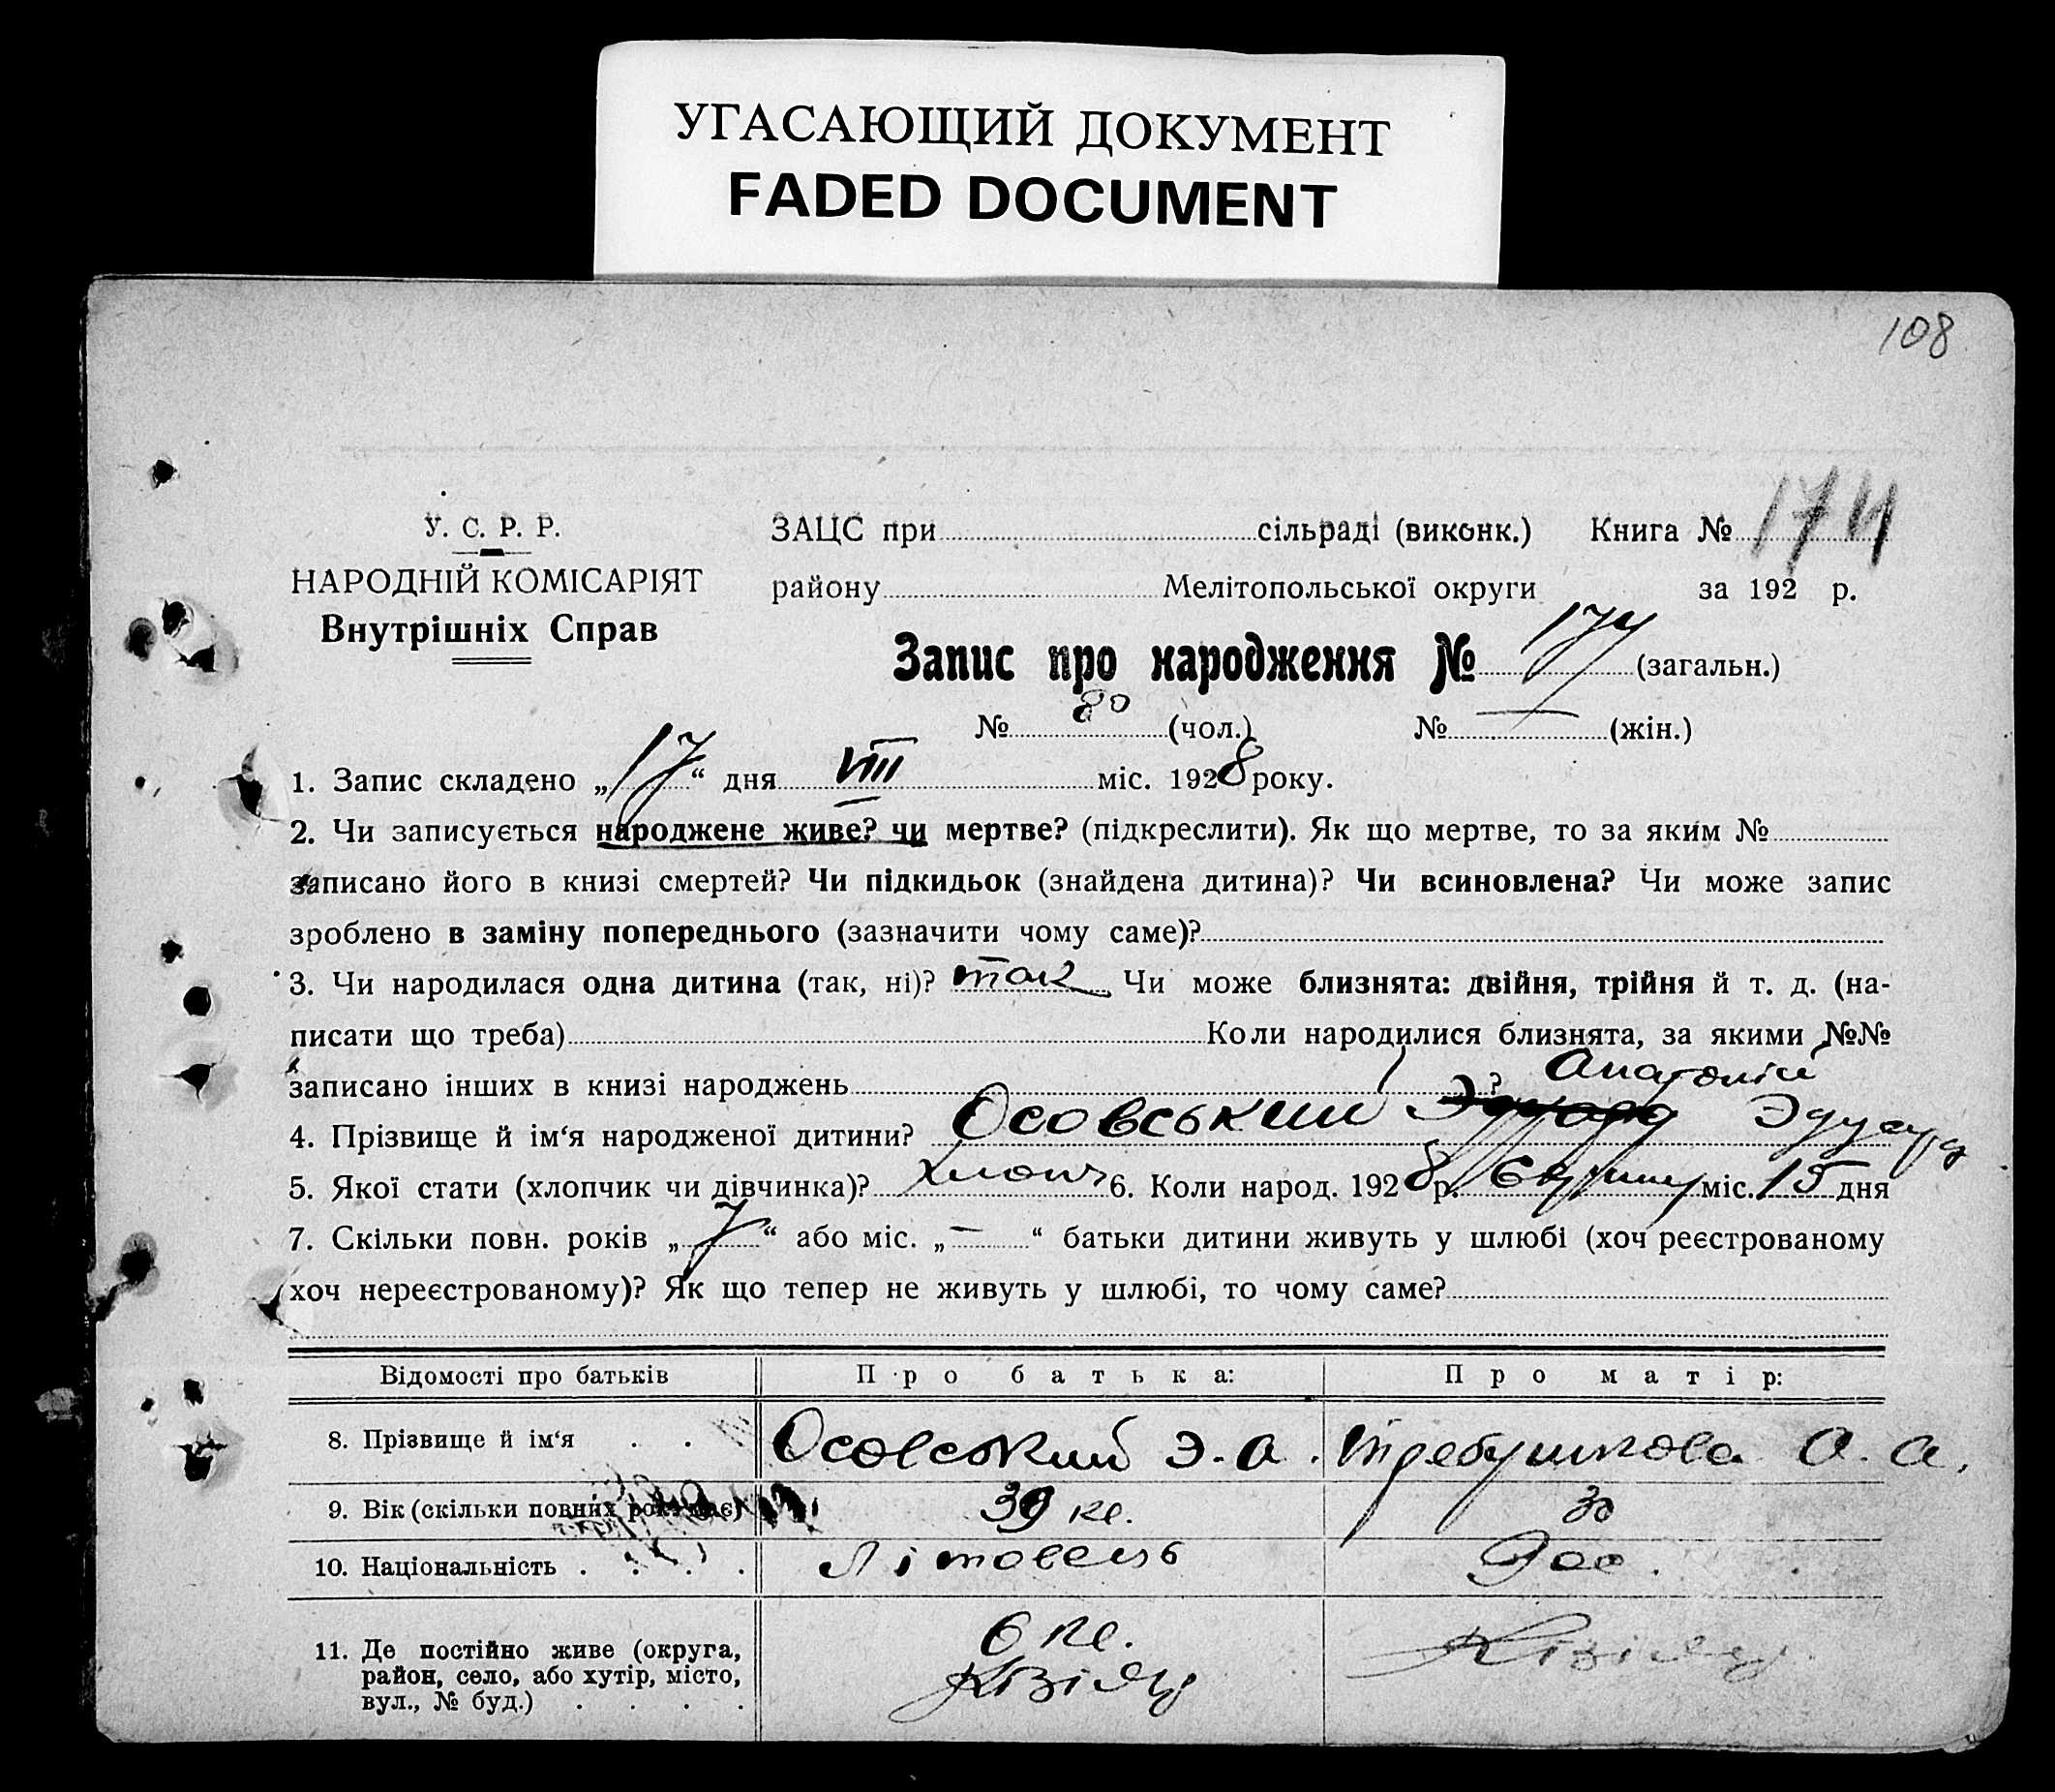 УГАСАЮЩИЙ ДОКУМЕНТ
FADED DOCUMENT
108
У. С. Р. Р.
НАРОДНІЙ КОМІСАРІЯТ
Внутрішніх Справ
ЗАЦС при сільраді (виконк.) Книга № 174
району Мелітопольської округи за 192 р.
Запис про народження № 174 (загальн.)
№ 80 (чол.) № — (жін.)
1. Запис складено „17“ дня VIII міс. 1928 року.
2. Чи записується народжене живе? чи мертве? (підкреслити). Як що мертве, то за яким №
записано його в книзі смертей? Чи підкидьок (знайдена дитина)? Чи всиновлена? Чи може запис
зроблено в заміну попереднього (зазначити чому саме)?
3. Чи народилася одна дитина (так, ні)? так Чи може близнята: двійня, трійня й т. д. (на-
писати що треба) Коли народилися близнята, за якими №№
записано інших в книзі народжень ?
Анатолій
4. Прізвище й ім‘я народженої дитини? Осовський Эдуард Эдуард
5. Якої стати (хлопчик чи дівчинка)? хлопч 6. Коли народ. 1928 р. міс. 15 дня
7. Скільки повн. років „7“ або міс. „—“ батьки дитини живуть у шлюбі (хоч реєстрованому
хоч нереєстрованому)? Як що тепер не живуть у шлюбі, то чому саме?
Відомості про батьків Про батька: Про матір:
8. Прізвище й ім‘я . . Осовський Э. А. Требушкова А. А.
9. Вік (скільки повних рок. має) 39 30
10. Національність . . . . Літовець
11. Де постійно живе (округа,
район, село, або хутір, місто,
вул., № буд.) . . . .